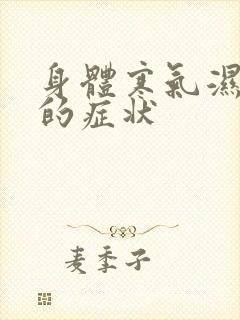 身體寒氣濕
的症状
麦季子